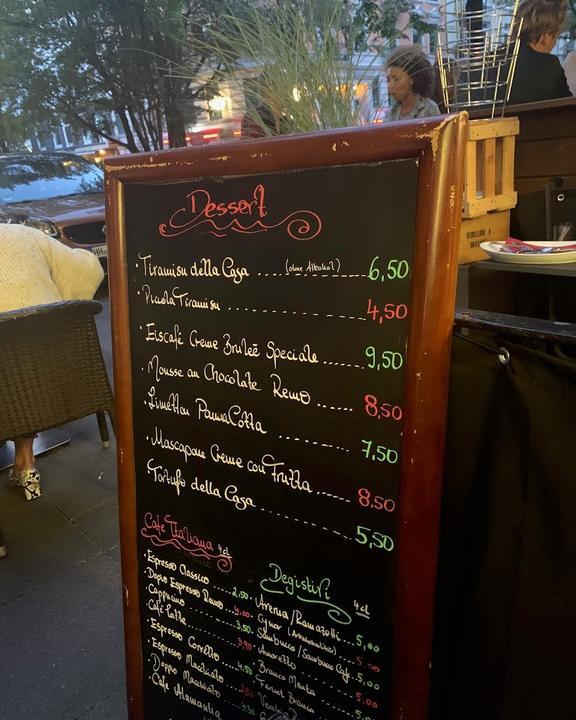 Dessert
Tiramisu della Casa .... (ohne Alkohol) ..... 6,50
Piccola Tiramisu ..... 4,50
Eiscafé Creme Bruleè Speciale ..... 9,50
Mousse au Chocolate Remo ..... 8,50
Limetten PannaCotta ..... 7,50
Mascapone Creme con Frutta ..... 8.50
Tartufo della Casa ..... 5,50
Cafe Italiana 4cl
Espresso Classico 2.50
Dopio Espresso Remo 4,00
Cappucino 3,50
Café Latte 3,90
Espresso Corretto 4,50
Espresso Macchiato
Doppio Macchiato
Cafe Alamanha
Degistivi 4cl
Averna/Ramazotti .. 5,00
Cynar 5,00
Sambuca/Sambuca Caf.. 5,00
Amaretto 5,00
Branca Menta 5,00
Fernet Branca 5,00